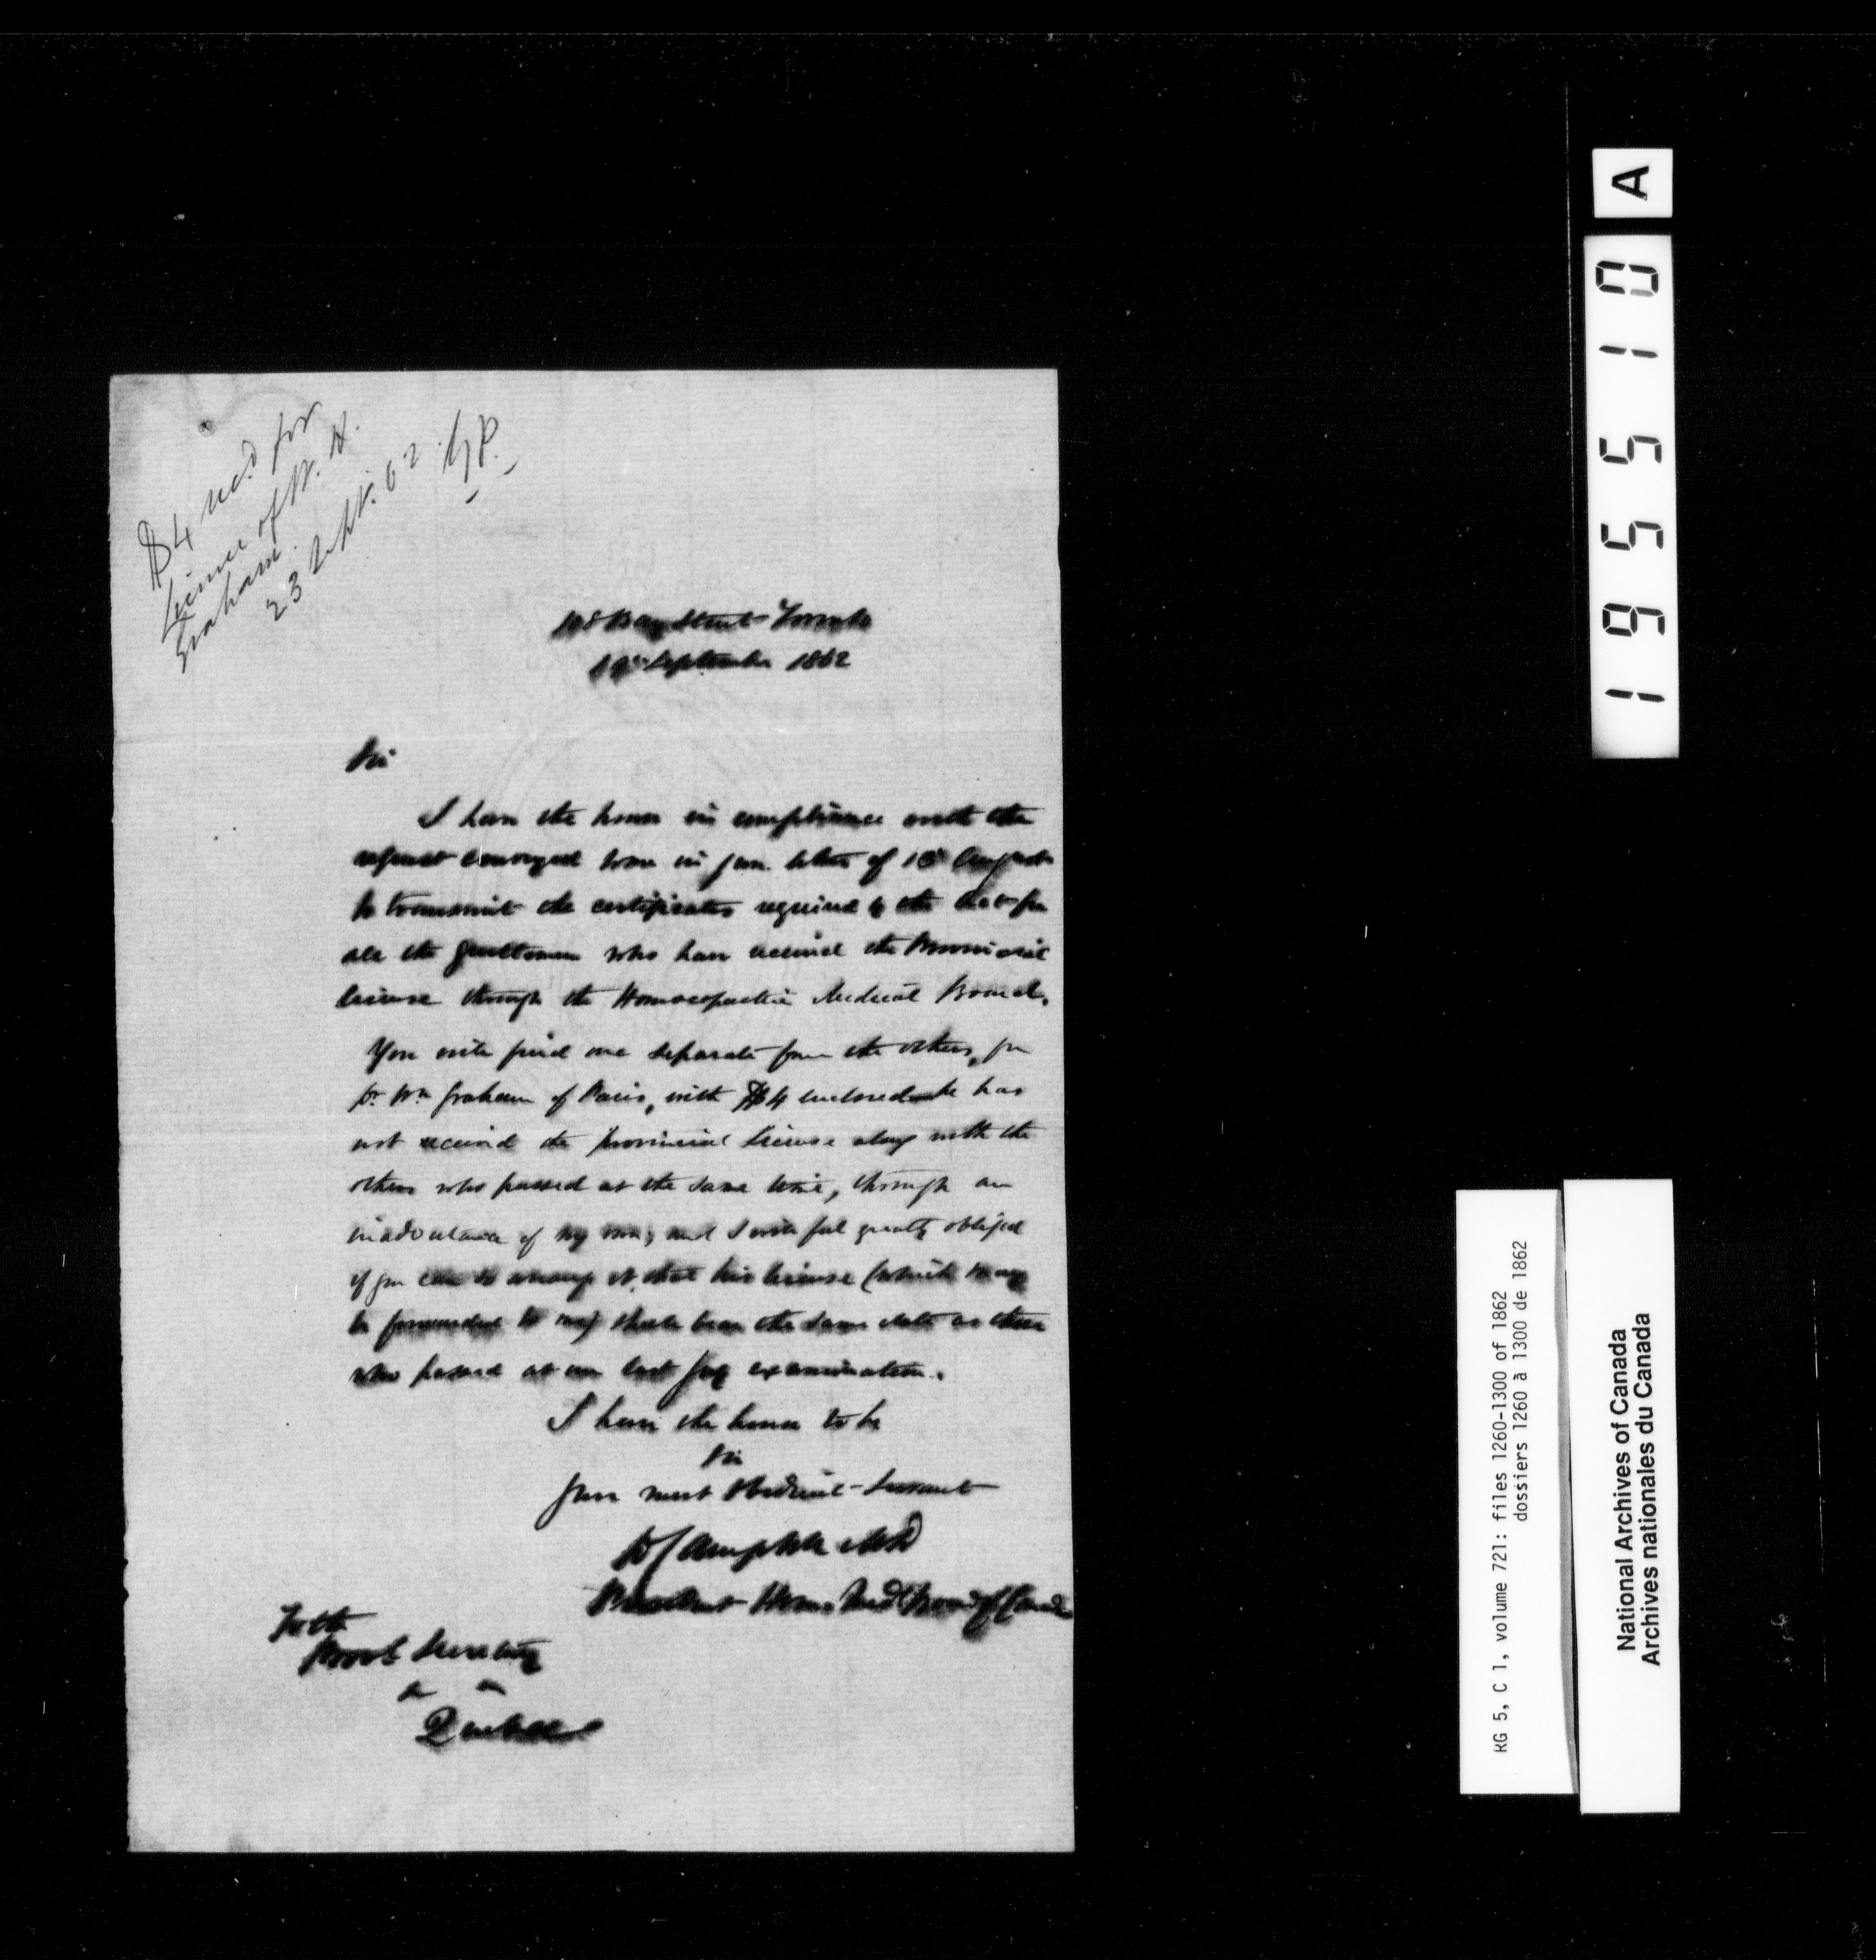 $4 recd for
License of W. H.
Graham.
23 Sept. 62
Bay Street Toronto
September 1862
Sir
I have the honor in compliance with the
request conveyed to me in your letter of 18th August
to transmit the certificates required by the Act for
all the gentlemen who have received the Provincial
license through the Homoeopathic Medical Board.
You will find one separate from the others, for
Dr Wm Graham of Paris, with $4 enclosed he has
not received the provincial license along with the
others who passed at the same time, through an
inadvertance of my own; and I will feel greatly obliged
if you can so arrange it, that his license (which may
be forwarded to me) shall bear the same date as those
who passed at our last July examination.
I have the honor to be
Sir
Your most Obedient Servant
D Campbell MD
President Homo Med Board of Canada
To the
Provl Secretary
Quebec
195510
A
RG 5, C 1, volume 721: files 1260-1300 of 1862
dossiers 1260 à 1300 de 1862
National Archives of Canada
Archives nationales du Canada